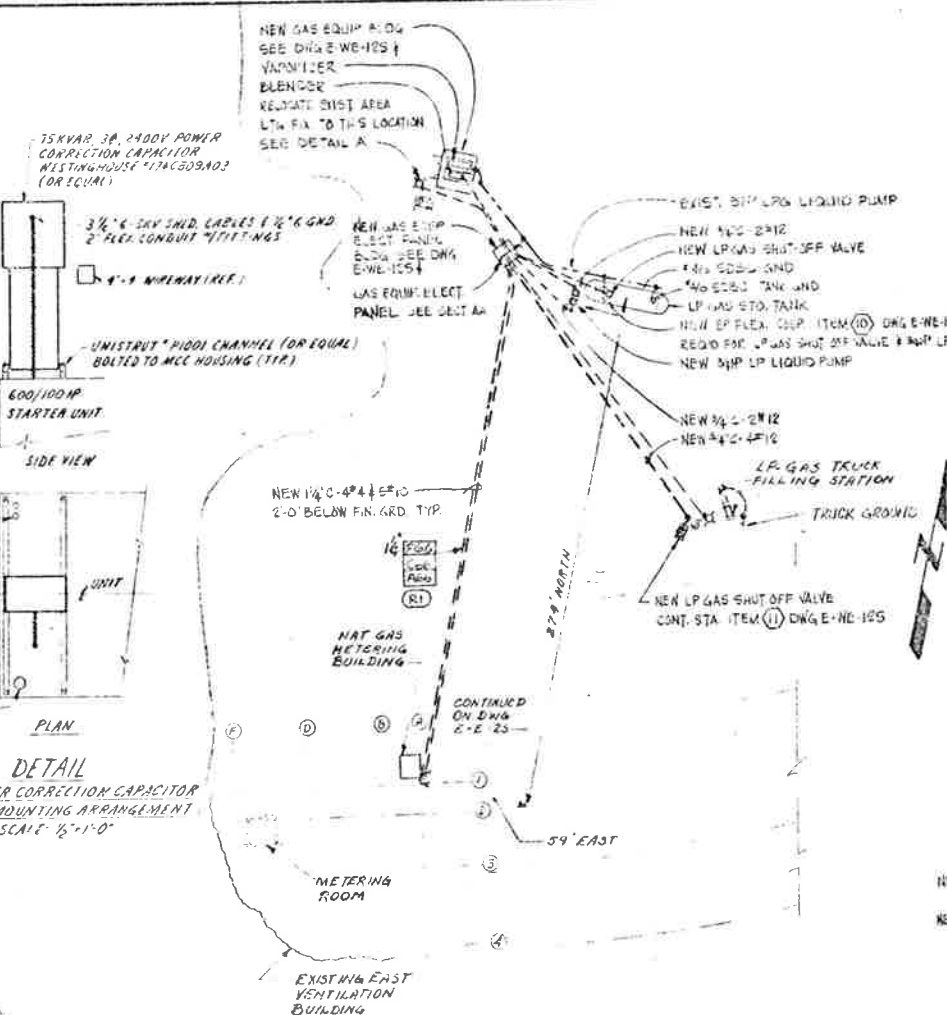 NEW GAS EQUIP BLDG
SEE DWG E-WE-125
VAPORIZER
BLENDER
RELOCATE EXIST AREA
LTG FIX TO THIS LOCATION
SEE DETAIL A
75KVAR, 3Φ, 2400V POWER
CORRECTION CAPACITOR
WESTINGHOUSE
(OR EQUAL)
SHLD. CABLES
2" FLEX. CONDUIT W/FITTINGS
4"×4" WIREWAY (REF.)
UNISTRUT #P1001 CHANNEL (OR EQUAL)
BOLTED TO MCC HOUSING (TYP.)
600/100 HP
STARTER UNIT
SIDE VIEW
UNIT
PLAN
DETAIL
CORRECTION CAPACITOR
MOUNTING ARRANGEMENT
SCALE: 1/2"=1'-0"
NEW GAS EQUIP
ELECT PANEL
BLDG SEE DWG
E-WE-125
GAS EQUIP. ELECT
PANEL SEE SECT AA
EXIST. LPG LIQUID PUMP
NEW 3/4"C-2#12
NEW LP GAS SHUT-OFF VALVE
#4/0 GND
#4/0 TANK GND
LP GAS STO. TANK
NEW FLEX. ITEM (10)
REQ'D FOR LP GAS SHUT OFF VALVE
NEW LP LIQUID PUMP
NEW 3/4"C-2#12
NEW 3/4"C-4#12
LP-GAS TRUCK
FILLING STATION
TRUCK GROUND
NEW LP GAS SHUT OFF VALVE
CONT. STA. ITEM (11) DWG E-WE-125
NEW 1 1/4"C-4#4 & 5#10
2'-0" BELOW FIN. GRD. TYP.
R1
274' NORTH
NAT GAS
METERING
BUILDING
CONTINUED
ON DWG
E-E-25
F
D
B
A
1
2
3
4
59' EAST
METERING
ROOM
EXISTING EAST
VENTILATION
BUILDING